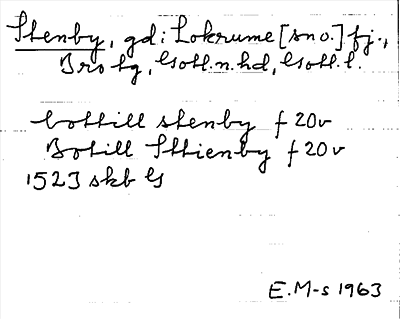 Stenby, gd: Lokrume [sno.] fj.,
Bro tg, Gotl.n.hd, Gotl.l.
bottill stenby f 20v
Botill Sttienby f 20v
1523 skb G
E.M-s 1963